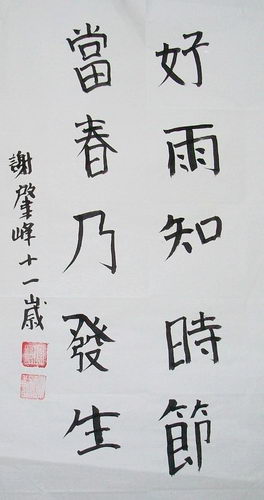 好雨知時節
當春乃發生
謝啟峰十一歲